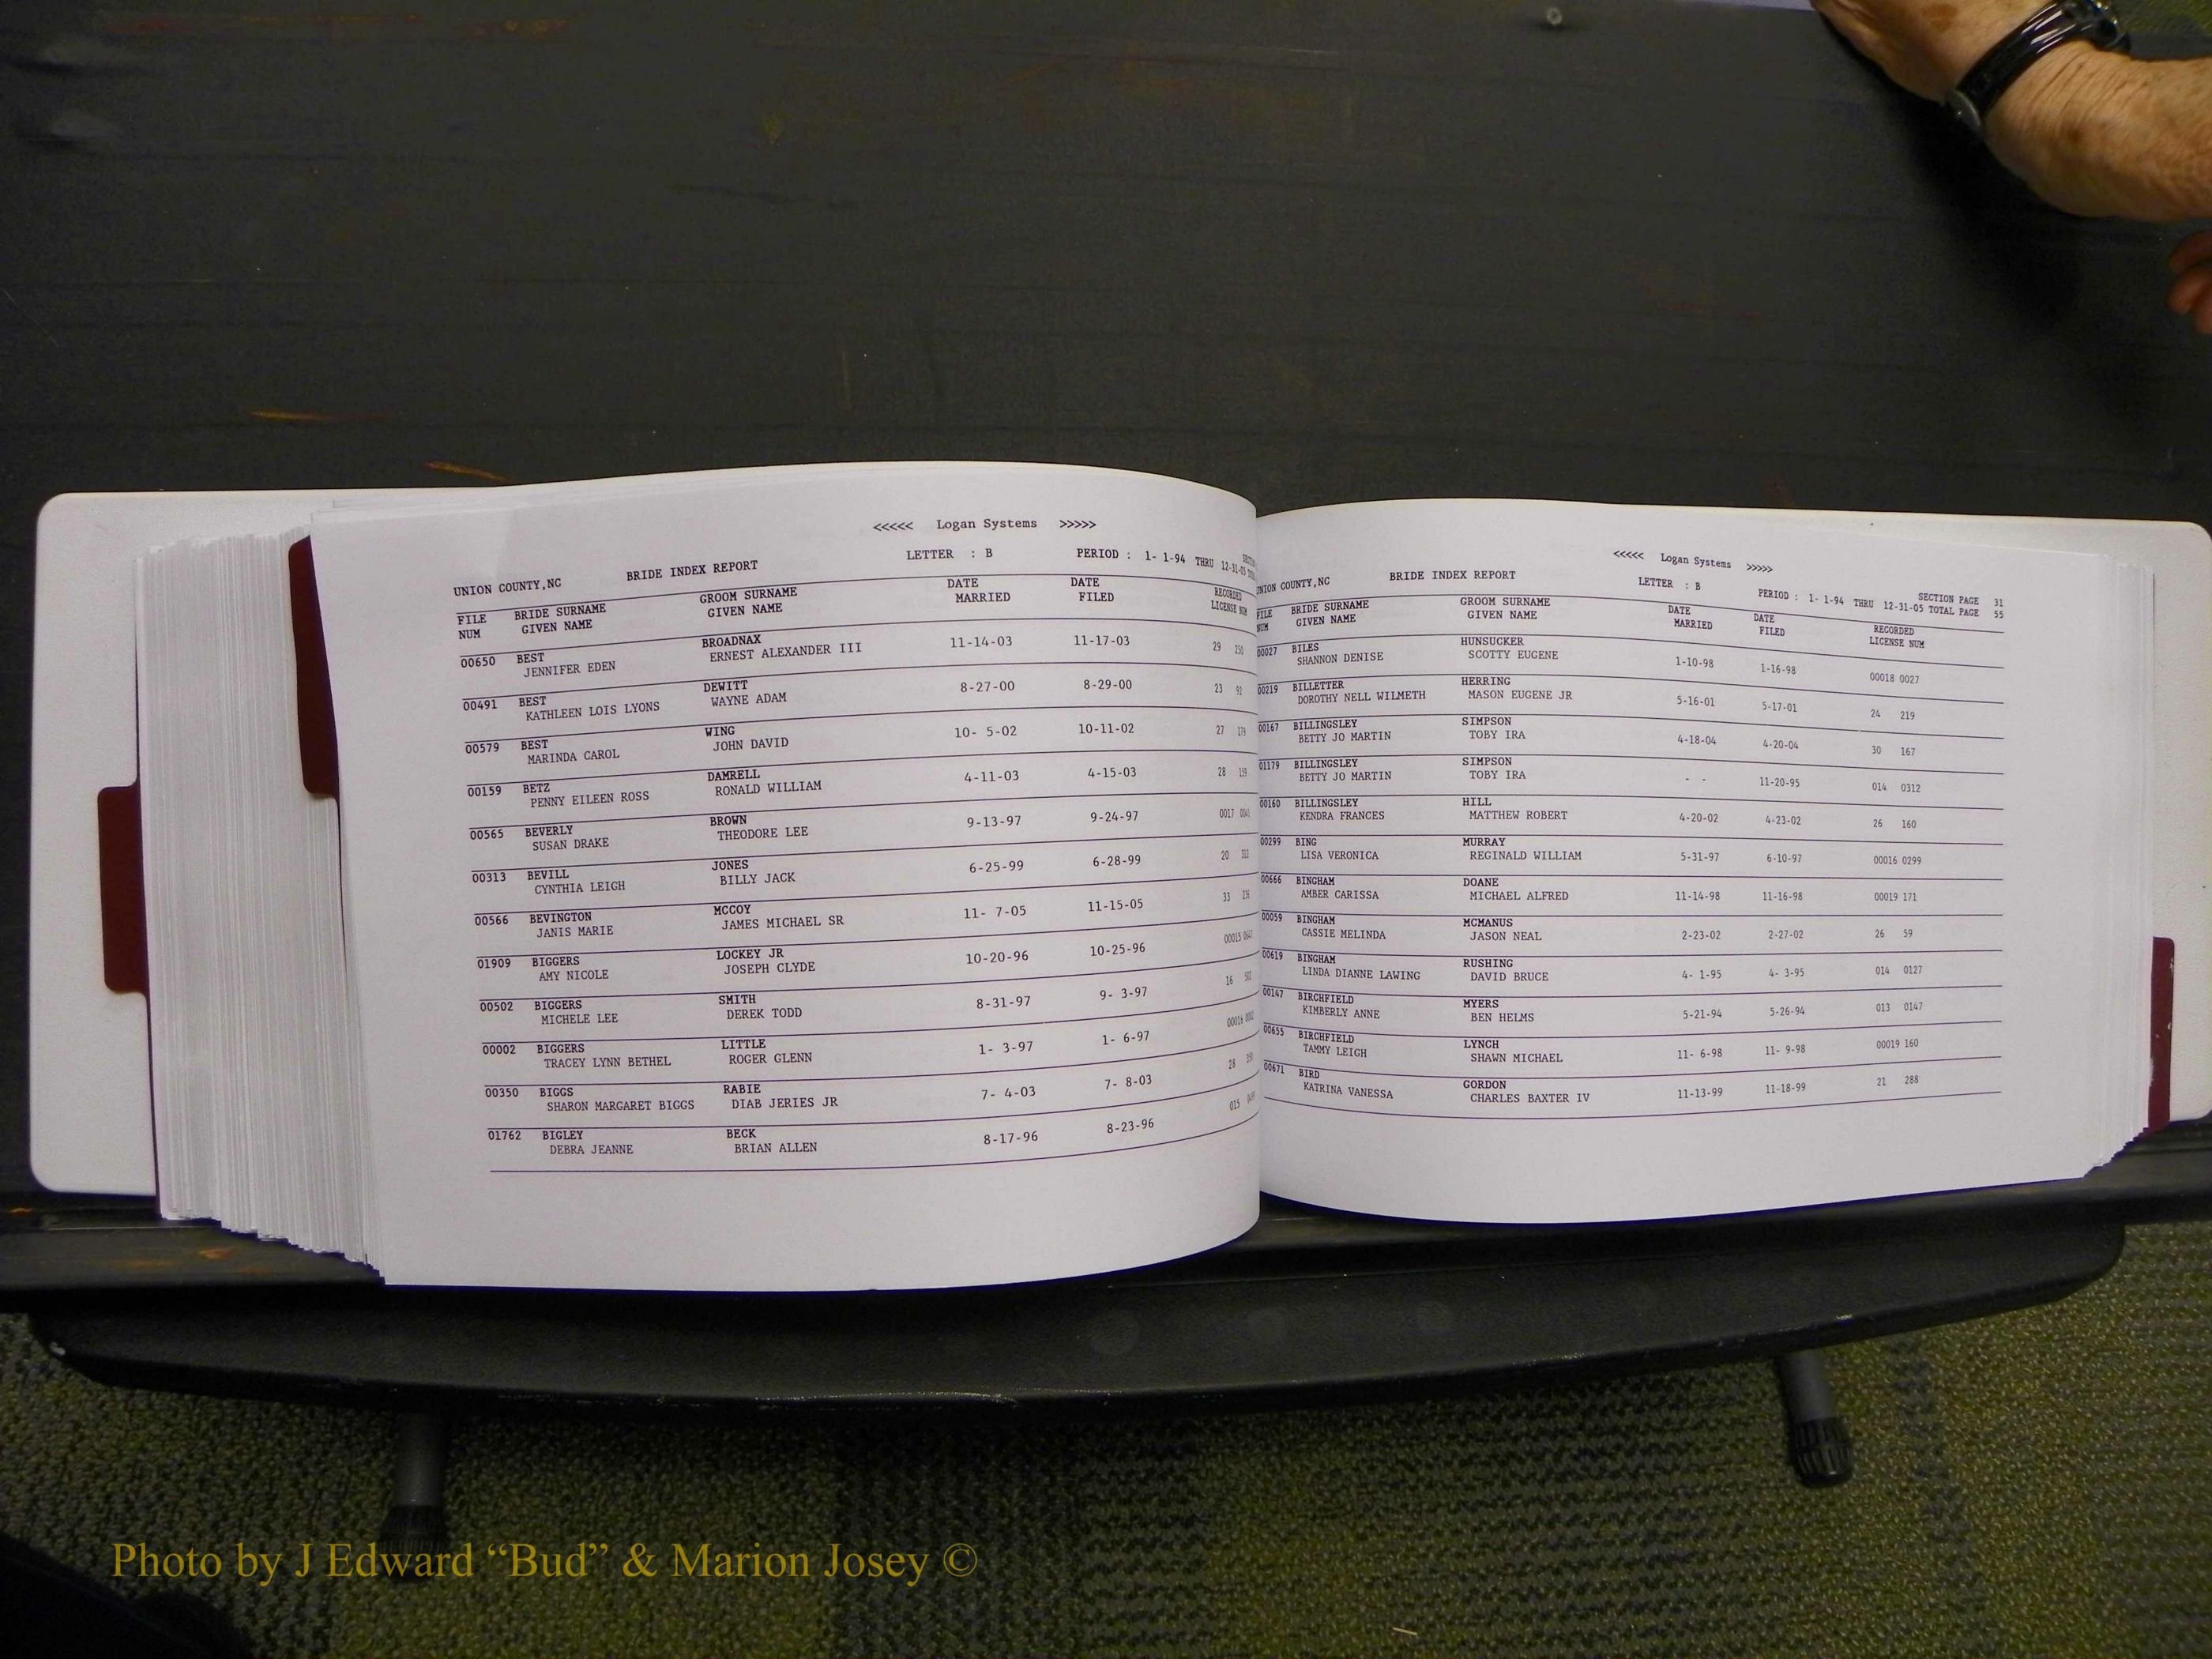 <<<<< Logan Systems >>>>>
UNION COUNTY,NC BRIDE INDEX REPORT LETTER : B PERIOD : 1- 1-94 THRU 12-31-05
FILE BRIDE SURNAME GROOM SURNAME DATE DATE RECORDED
NUM GIVEN NAME GIVEN NAME MARRIED FILED LICENSE NUM
00650 BEST BROADNAX 11-14-03 11-17-03 29 250
JENNIFER EDEN ERNEST ALEXANDER III
00491 BEST DEWITT 8-27-00 8-29-00 23 92
KATHLEEN LOIS LYONS WAYNE ADAM
00579 BEST WING 10- 5-02 10-11-02 27 179
MARINDA CAROL JOHN DAVID
00159 BETZ DAMRELL 4-11-03 4-15-03 28 159
PENNY EILEEN ROSS RONALD WILLIAM
00565 BEVERLY BROWN 9-13-97 9-24-97 0017
SUSAN DRAKE THEODORE LEE
00313 BEVILL JONES 6-25-99 6-28-99 20
CYNTHIA LEIGH BILLY JACK
00566 BEVINGTON MCCOY 11- 7-05 11-15-05 33
JANIS MARIE JAMES MICHAEL SR
01909 BIGGERS LOCKEY JR 10-20-96 10-25-96 00015
AMY NICOLE JOSEPH CLYDE
00502 BIGGERS SMITH 8-31-97 9- 3-97 16
MICHELE LEE DEREK TODD
00002 BIGGERS LITTLE 1- 3-97 1- 6-97 00016
TRACEY LYNN BETHEL ROGER GLENN
00350 BIGGS RABIE 7- 4-03 7- 8-03 28
SHARON MARGARET BIGGS DIAB JERIES JR
01762 BIGLEY BECK 8-17-96 8-23-96 015
DEBRA JEANNE BRIAN ALLEN
<<<<< Logan Systems >>>>>
UNION COUNTY,NC BRIDE INDEX REPORT LETTER : B SECTION PAGE 31
PERIOD : 1- 1-94 THRU 12-31-05 TOTAL PAGE 55
FILE BRIDE SURNAME GROOM SURNAME DATE DATE RECORDED
NUM GIVEN NAME GIVEN NAME MARRIED FILED LICENSE NUM
00027 BILES HUNSUCKER 1-10-98 1-16-98 00018 0027
SHANNON DENISE SCOTTY EUGENE
00219 BILLETTER HERRING 5-16-01 5-17-01 24 219
DOROTHY NELL WILMETH MASON EUGENE JR
00167 BILLINGSLEY SIMPSON 4-18-04 4-20-04 30 167
BETTY JO MARTIN TOBY IRA
01179 BILLINGSLEY SIMPSON - - 11-20-95 014 0312
BETTY JO MARTIN TOBY IRA
00160 BILLINGSLEY HILL 4-20-02 4-23-02 26 160
KENDRA FRANCES MATTHEW ROBERT
00299 BING MURRAY 5-31-97 6-10-97 00016 0299
LISA VERONICA REGINALD WILLIAM
00666 BINGHAM DOANE 11-14-98 11-16-98 00019 171
AMBER CARISSA MICHAEL ALFRED
00059 BINGHAM MCMANUS 2-23-02 2-27-02 26 59
CASSIE MELINDA JASON NEAL
00619 BINGHAM RUSHING 4- 1-95 4- 3-95 014 0127
LINDA DIANNE LAWING DAVID BRUCE
00147 BIRCHFIELD MYERS 5-21-94 5-26-94 013 0147
KIMBERLY ANNE BEN HELMS
00655 BIRCHFIELD LYNCH 11- 6-98 11- 9-98 00019 160
TAMMY LEIGH SHAWN MICHAEL
00671 BIRD GORDON 11-13-99 11-18-99 21 288
KATRINA VANESSA CHARLES BAXTER IV
Photo by J Edward “Bud” & Marion Josey ©